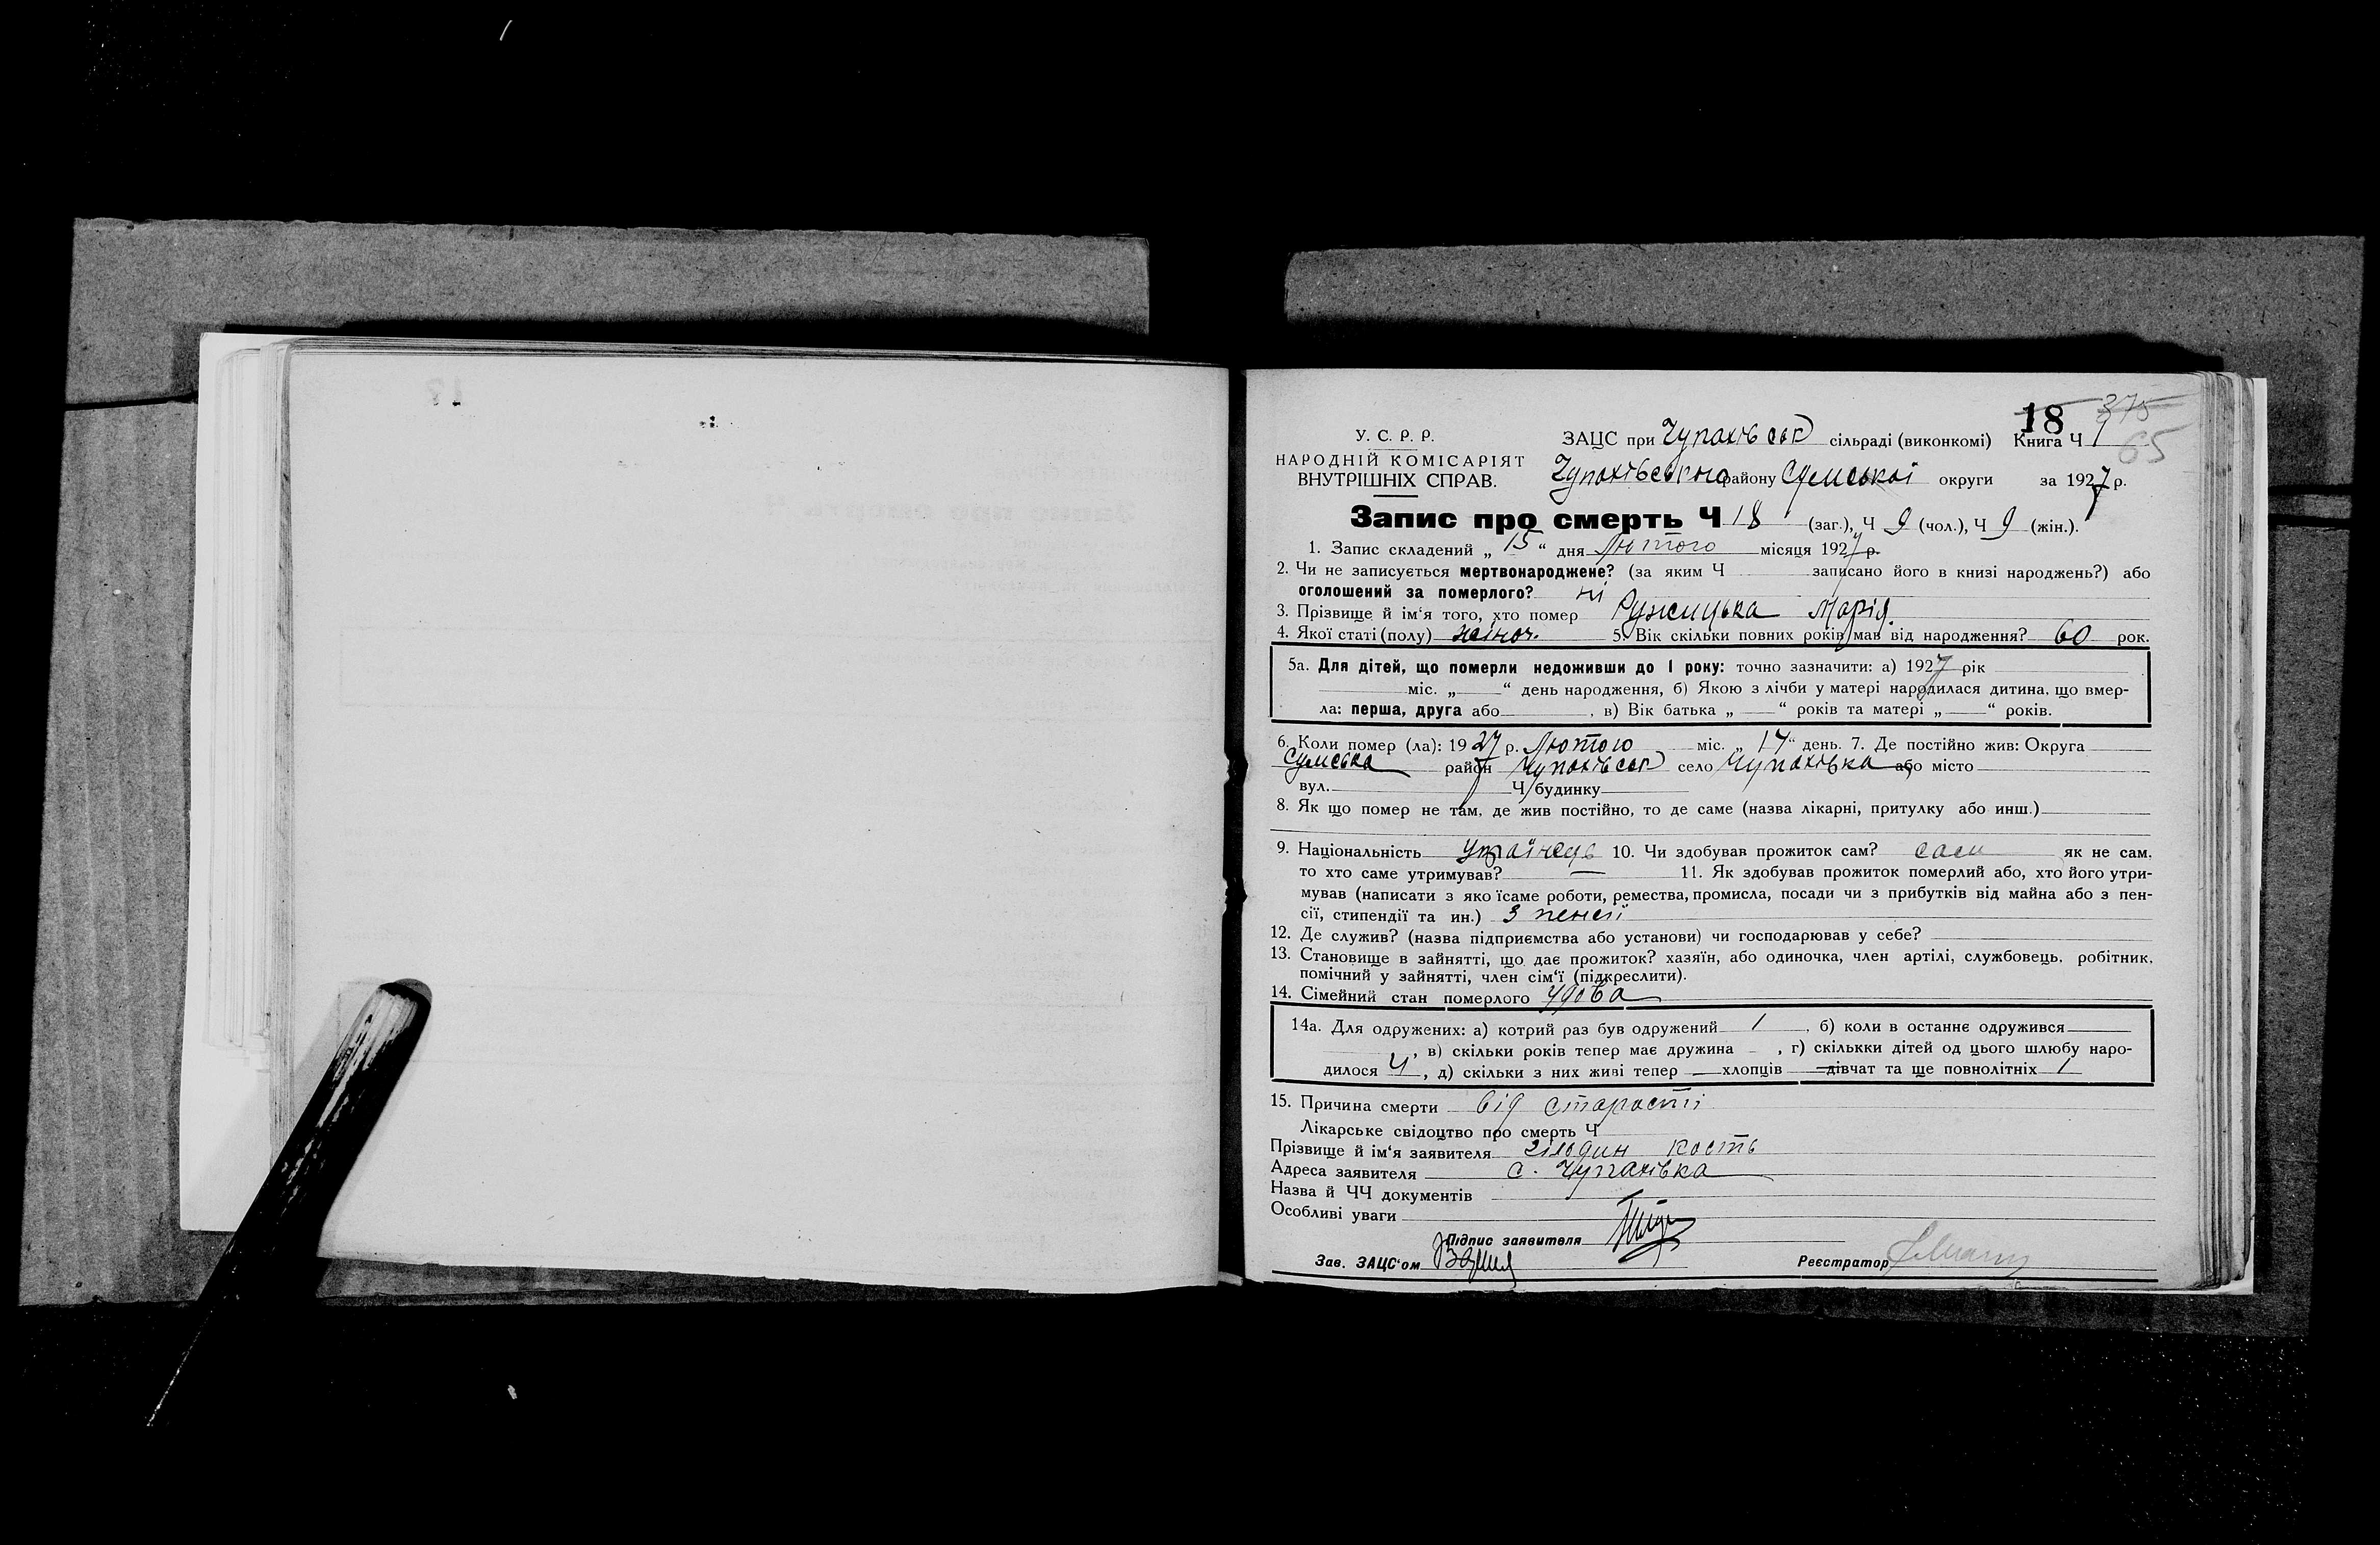 18 375
У. С. Р. Р. ЗАЦС при Чупахівськ сільраді (виконкомі) Книга Ч 1
65
НАРОДНІЙ КОМІСАРІЯТ
ВНУТРІШНІХ СПРАВ. Чупахівського району Сумської округи за 1927 р.
Запис про смерть Ч 18 (заг.), Ч 9 (чол.), Ч 9 (жін.).
1. Запис складений „ 15 “ дня Лютого місяця 1927 р.
2. Чи не записується мертвонароджене? (за яким Ч записано його в книзі народжень?) або
оголошений за померлого? ні
3. Прізвище й ім‘я того, хто помер Ружицька Марія.
4. Якої статі (полу) жіноч. 5. Вік скільки повних років мав від народження? 60 рок.
5а. Для дітей, що померли недоживши до 1 року: точно зазначити: а) 1927 рік
міс. „ “ день народження, б) Якою з лічби у матері народилася дитина, що вмер-
ла: перша, друга або , в) Вік батька „ “ років та матері „ “ років.
6. Коли помер (ла): 1927 р. Лютого міс. „ 14 “ день. 7. Де постійно жив: Округа
Сумська район Чупахівськ село Чупахівка або місто
вул. Ч будинку
8. Як що помер не там, де жив постійно, то де саме (назва лікарні, притулку або инш.)
9. Національність Українець 10. Чи здобував прожиток сам? сам як не сам,
то хто саме утримував? — 11. Як здобував прожиток померлий або, хто його утри-
мував (написати з яко їсаме роботи, ремества, промисла, посади чи з прибутків від майна або з пен-
сії, стипендії та ин.) З пенсії
12. Де служив? (назва підприємства або установи) чи господарював у себе?
13. Становище в зайнятті, що дає прожиток? хазяїн, або одиночка, член артілі, службовець, робітник,
помічний у зайнятті, член сім‘ї (підкреслити).
14. Сімейний стан померлого Удова
14а. Для одружених: а) котрий раз був одружений 1 , б) коли в останнє одружився
, в) скільки років тепер має дружина – , г) скількки дітей од цього шлюбу наро-
дилося 4 , д) скільки з них живі тепер — хлопців — дівчат та ще повнолітніх 1
15. Причина смерти від старості
Лікарське свідоцтво про смерть Ч
Прізвище й ім‘я заявителя Кость
Адреса заявителя с. Чупахівка
Назва й ЧЧ документів
Особливі уваги
Підпис заявителя
Зав. ЗАЦС‘ом Реєстратор